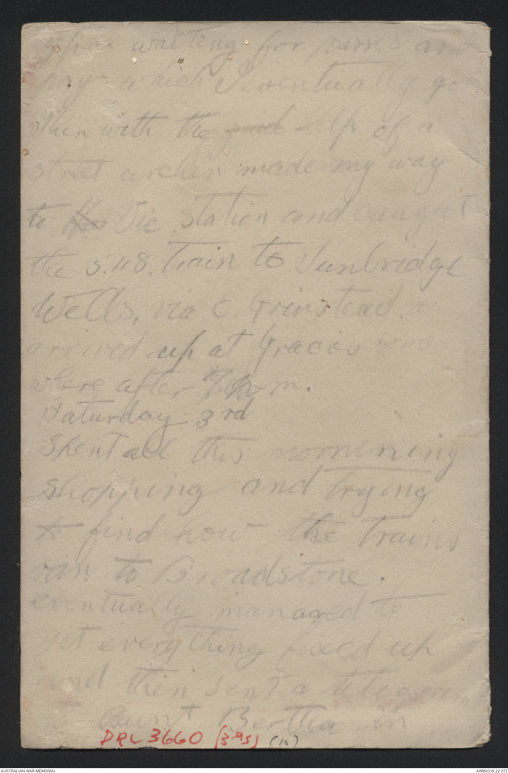 waiting for passes and
pay which I eventually go
Then with the help of a
street urchin made my way
to Vic. Station and caught
the 5.48. train to Tunbridge
Wells, via E. Grinstead.
arrived up at Gracies some
where after 7 pm.
Saturday 3rd
Spent all this mornining
shopping and trying
to find how the trains
ran to Broadstone.
eventually managed to
get everything fixed up
and then sent a telegram
Aunt Bertha
DRL 3660 (395)
AUSTRALIAN WAR MEMORIAL